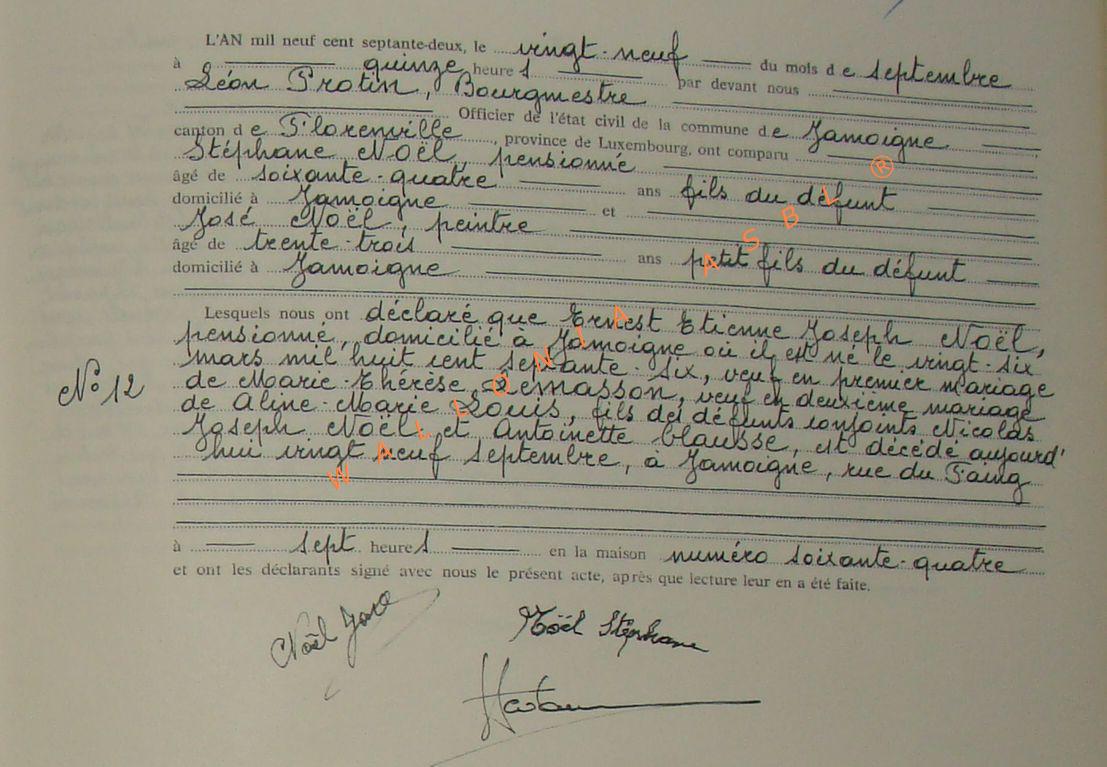 L'AN mil neuf cent septante-deux, le vingt-neuf du mois de septembre
à quinze heures par devant nous
Léon Protin, Bourgmestre
Officier de l'état civil de la commune de Jamoigne
canton de Florenville, province de Luxembourg, ont comparu
Stéphane Noël, pensionné
âgé de soixante-quatre ans fils du défunt
domicilié à Jamoigne et
José Noël, peintre
âgé de trente-trois ans petit fils du défunt
domicilié à Jamoigne
Lesquels nous ont déclaré que Ernest Etienne Joseph Noël,
pensionné, domicilié à Jamoigne où il est né le vingt-six
N° 12
mars mil huit cent septante-six, veuf en premier mariage
de Marie-Thérèse Lemasson, veuf en deuxième mariage
de Aline-Marie Louis, fils des défunts conjoints Nicolas
Joseph Noël et Antoinette Clausse, est décédé aujourd'
hui vingt neuf septembre, à Jamoigne, rue du Faing
à sept heures en la maison numéro soixante-quatre
et ont les déclarants signé avec nous le présent acte, après que lecture leur en a été faite.
Noël José
Noël Stéphane
WALLONIA ASBL ®